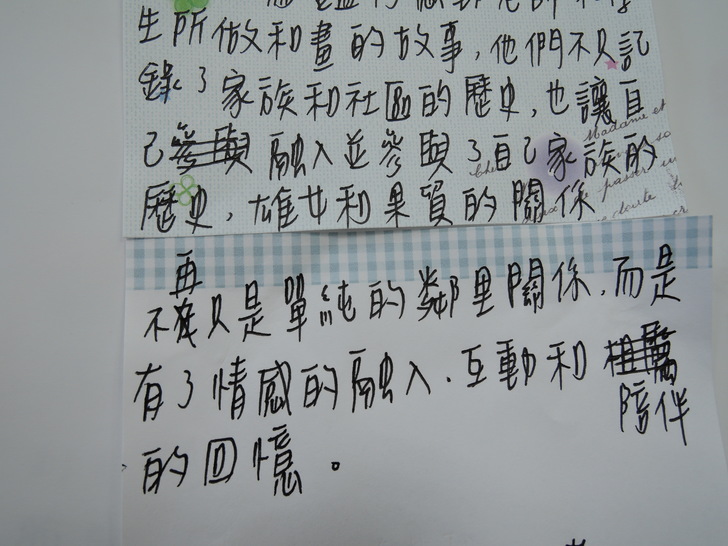 生所做和畫的故事,他們不只記
錄了家族和社區的歷史,也讓自
己參與融入並參與了自己家族的
歷史,雄女和果貿的關係
再
不只是單純的鄰里關係,而是
有了情感的融入、互動和
陪伴
的回憶。